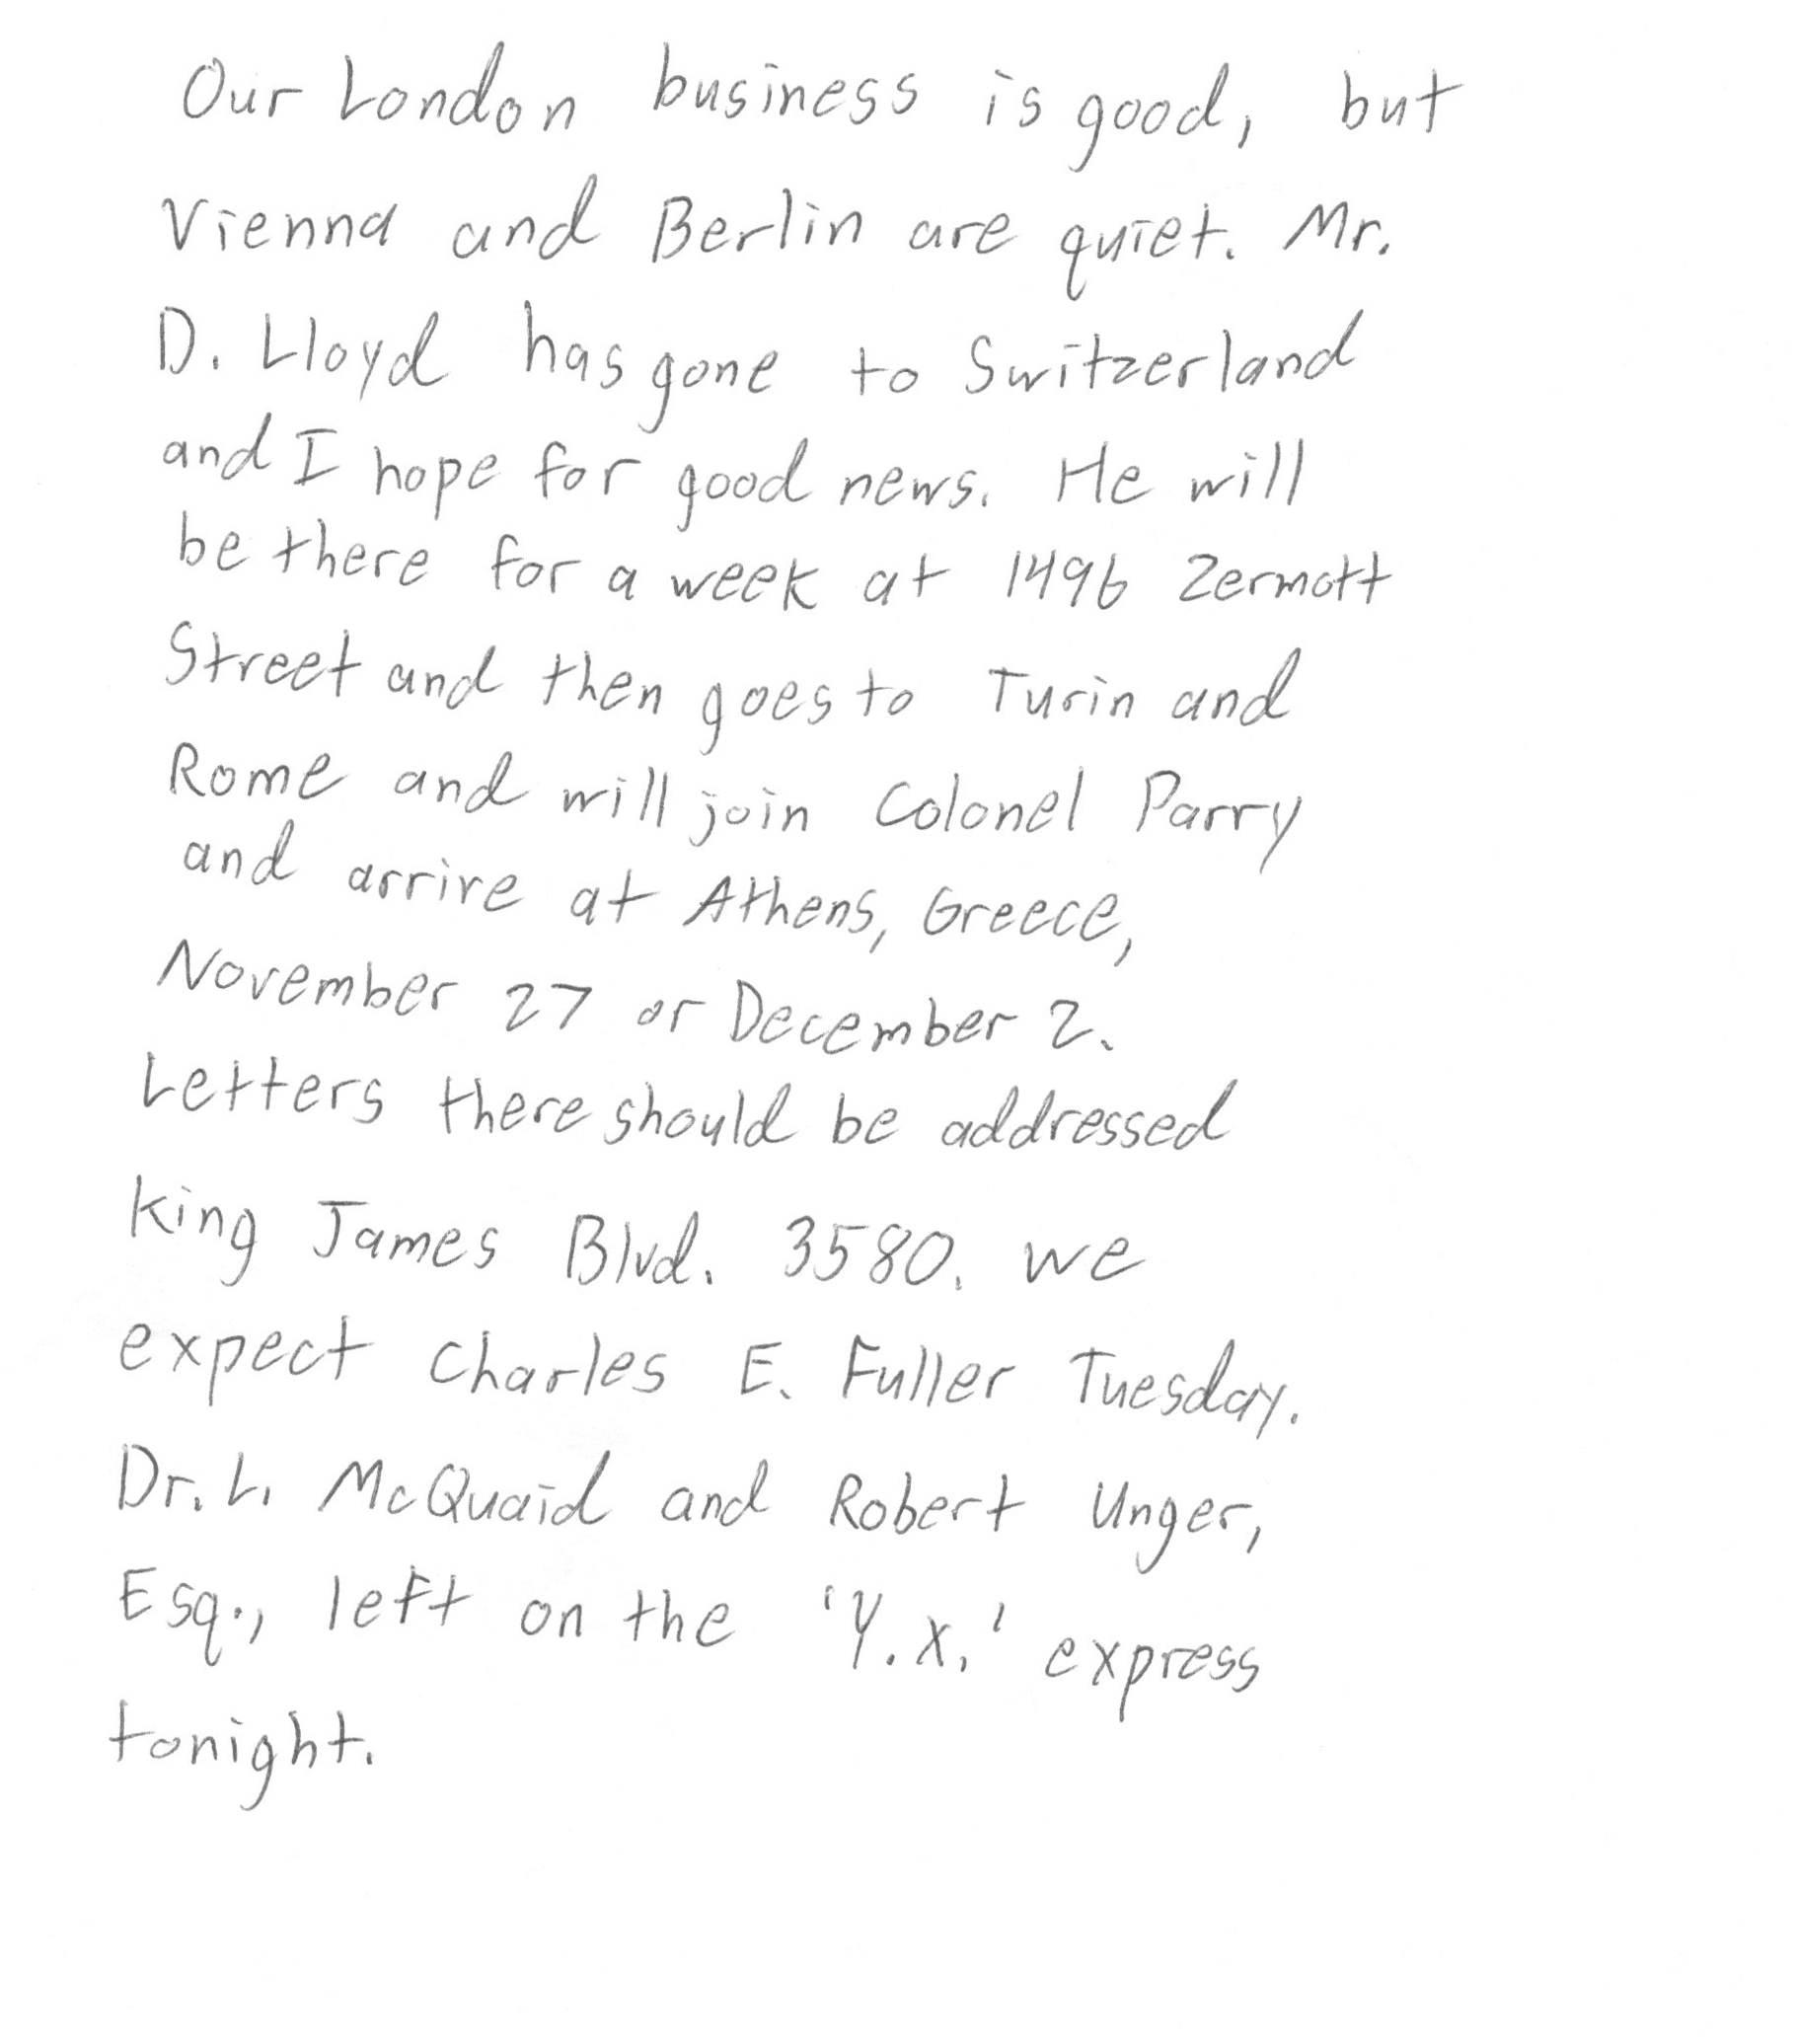 Our London business is good, but
Vienna and Berlin are quiet. Mr.
D. Lloyd has gone to Switzerland
and I hope for good news. He will
be there for a week at 1496 Zermott
Street and then goes to Turin and
Rome and will join Colonel Parry
and arrive at Athens, Greece,
November 27 or December 2.
Letters there should be addressed
King James Blvd. 3580. We
expect Charles E. Fuller Tuesday.
Dr. L. McQuaid and Robert Unger,
Esq., left on the 'Y.X.' express
tonight.